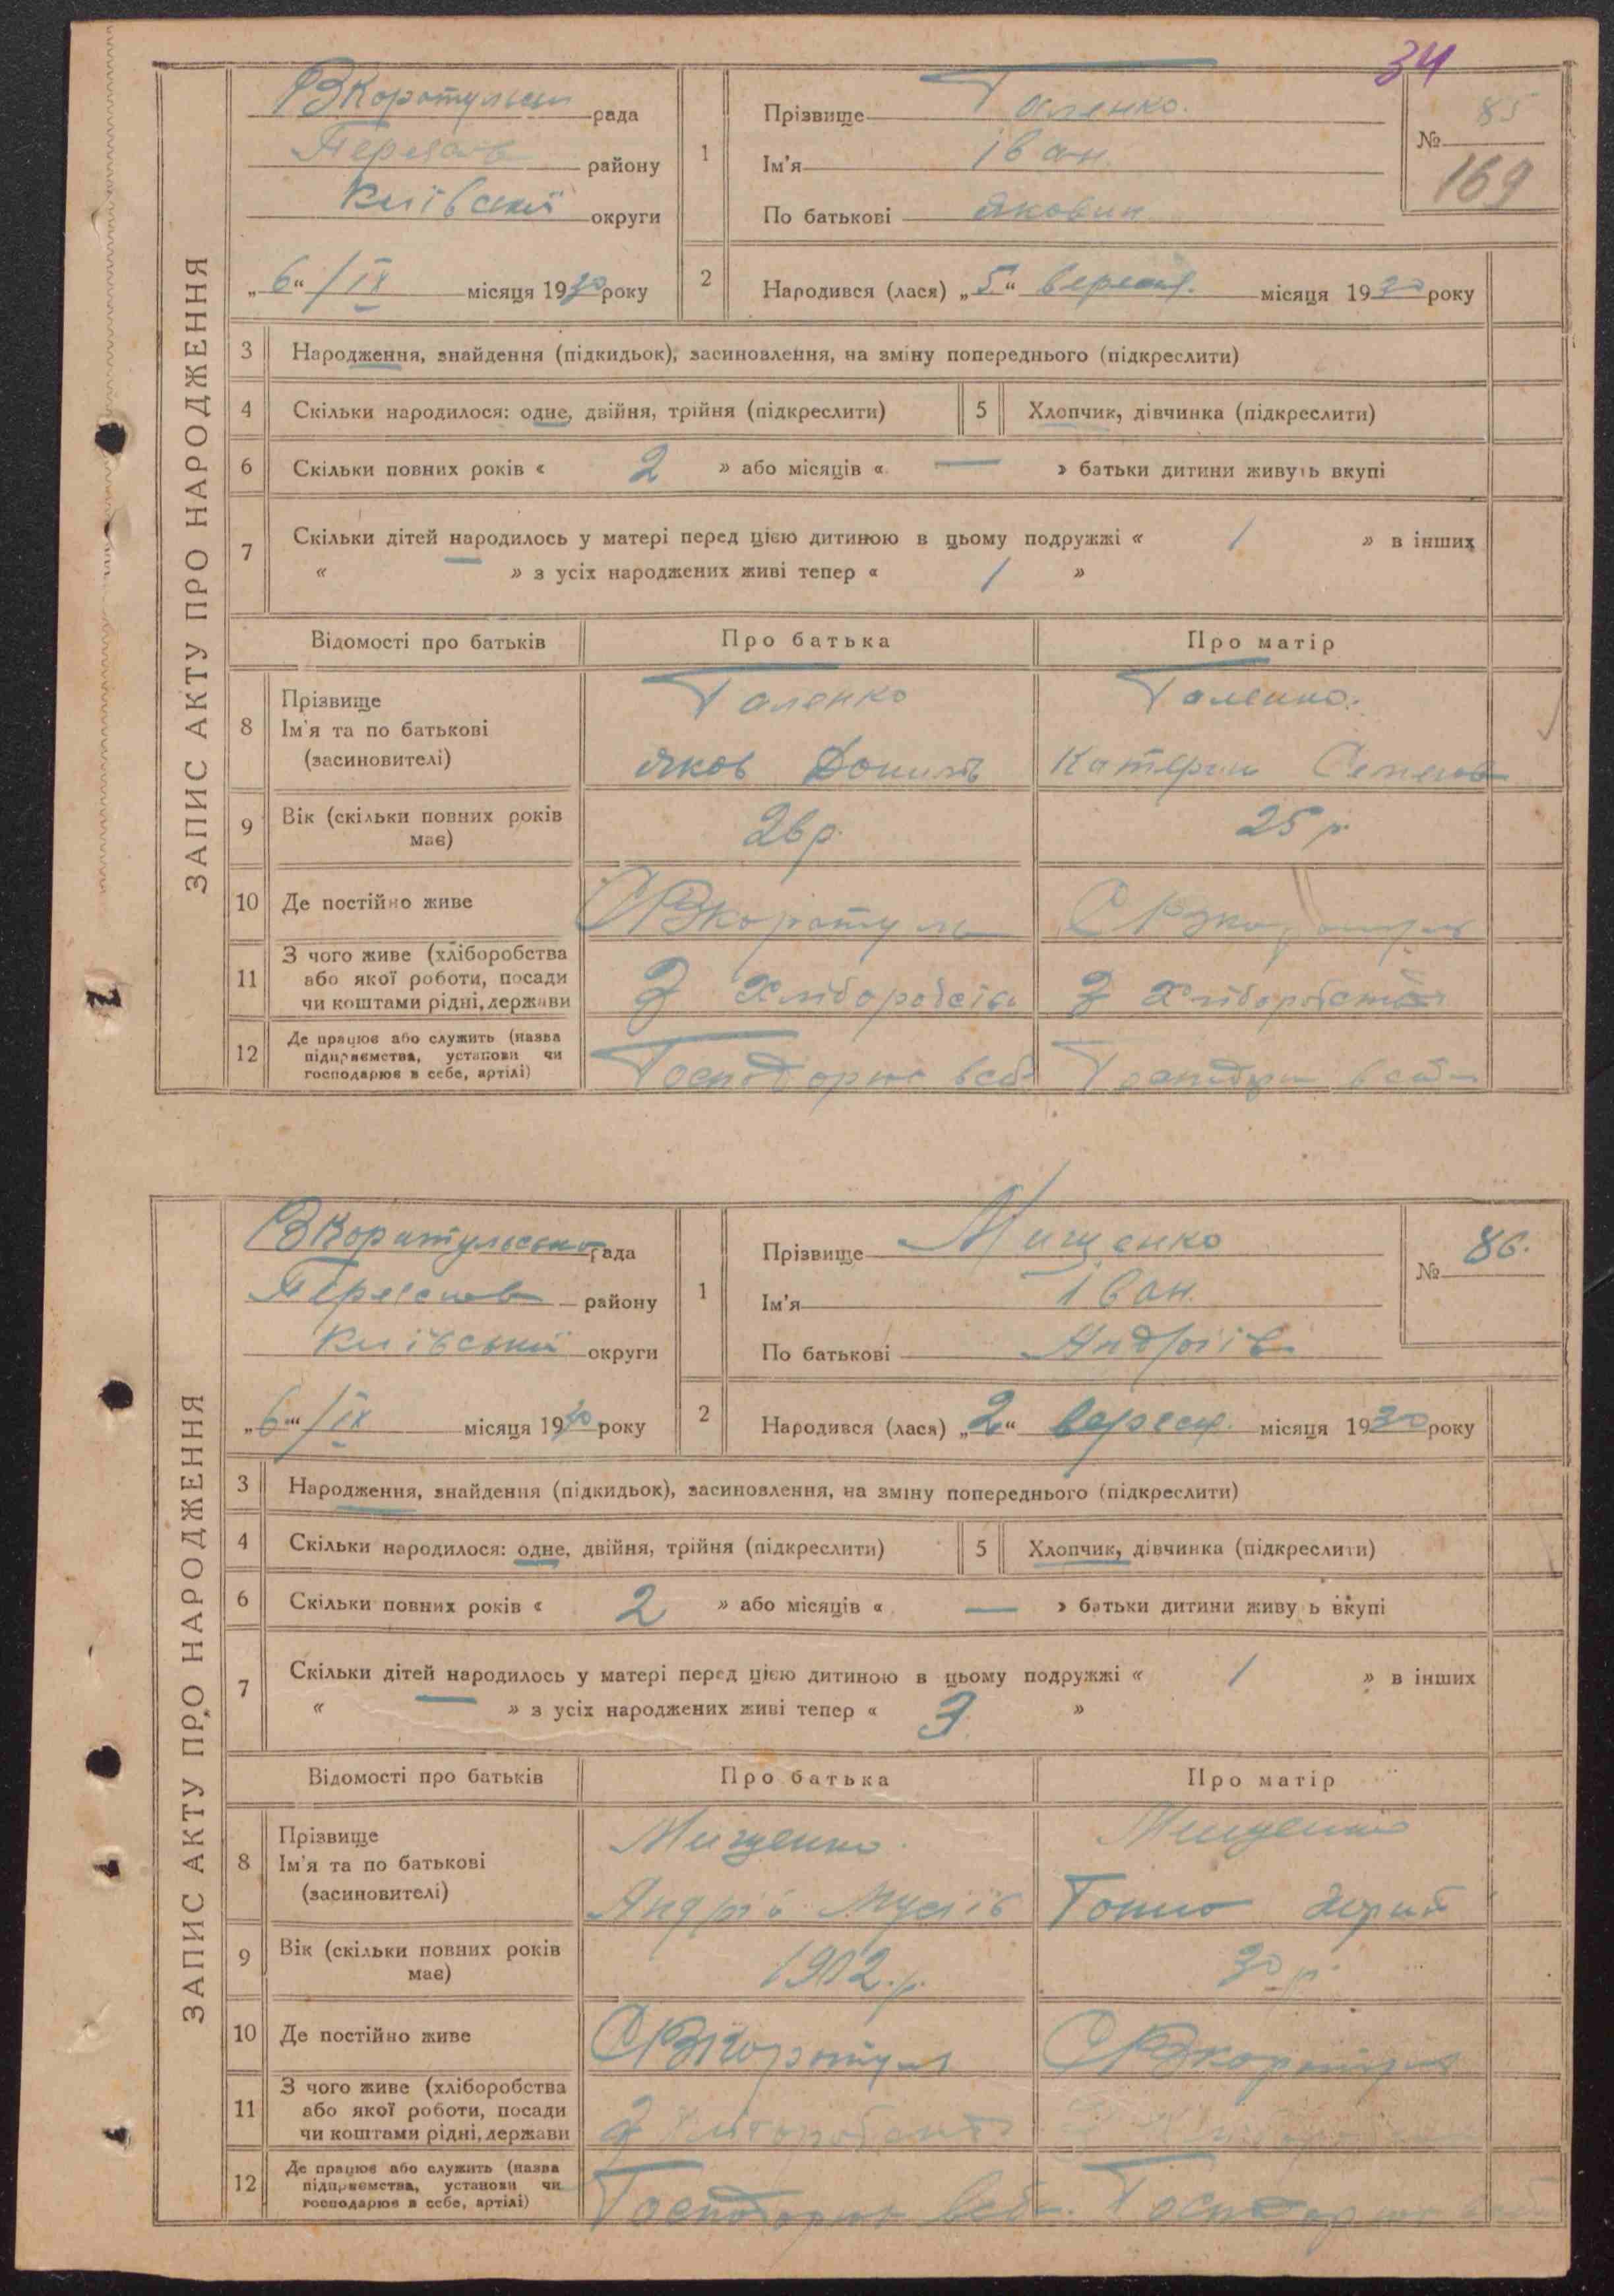 34
ЗАПИС АКТУ ПРО НАРОДЖЕННЯ
рада
району
Київської округи
„6“ /IX місяця 1930 року
1
Прізвище Галенко.
Ім'я Іван
По батькові Якович
№ 85
169
2
Народився (лася) „5“ вересня місяця 1930 року
3
Народження, знайдення (підкидьок), засиновлення, на зміну попереднього (підкреслити)
4
Скільки народилося: одне, двійня, трійня (підкреслити)
5
Хлопчик, дівчинка (підкреслити)
6
Скільки повних років « 2 » або місяців « — » батьки дитини живуть вкупі
7
Скільки дітей народилось у матері перед цією дитиною в цьому подружжі « 1 » в інших
« — » з усіх народжених живі тепер « 1 »
Відомості про батьків
Про батька
Про матір
8
Прізвище
Ім'я та по батькові
(засиновителі)
Галенко
Яков
Галенко.
Катерин Семенов
9
Вік (скільки повних років
має)
26 р.
25 р.
10
Де постійно живе
11
З чого живе (хліборобства
або якої роботи, посади
чи коштами рідні, держави
З хліборобства
З хліборобства
12
Де працює або служить (назва
підприємства, установи чи
господарює в себе, артілі)
Господарює в себе
ЗАПИС АКТУ ПРО НАРОДЖЕННЯ
рада
району
Київської округи
„6“ /IX місяця 1930 року
1
Прізвище Мищенко
Ім'я Іван.
По батькові Андріїв
№ 86.
2
Народився (лася) „2“ вересн. місяця 1930 року
3
Народження, знайдення (підкидьок), засиновлення, на зміну попереднього (підкреслити)
4
Скільки народилося: одне, двійня, трійня (підкреслити)
5
Хлопчик, дівчинка (підкреслити)
6
Скільки повних років « 2 » або місяців « — » батьки дитини живу ь вкупі
7
Скільки дітей народилось у матері перед цією дитиною в цьому подружжі « 1 » в інших
« — » з усіх народжених живі тепер « 3. »
Відомості про батьків
Про батька
Про матір
8
Прізвище
Ім'я та по батькові
(засиновителі)
Мищенко.
Андрій Мусіїв
Мищенко
9
Вік (скільки повних років
має)
1902.р.
30 р.
10
Де постійно живе
11
З чого живе (хліборобства
або якої роботи, посади
чи коштами рідні, держави
З
12
Де працює або служить (назва
підприємства, установи чи
господарює в себе, артілі)
Господарює в себе.
Господарює